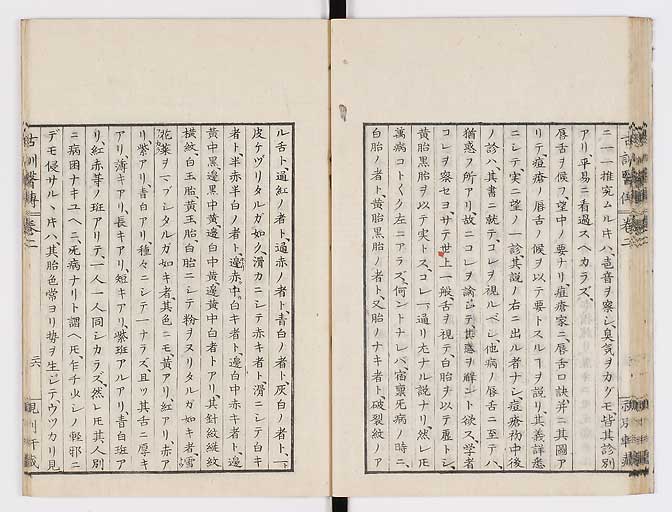 ニ一一推究ムルキハ、聲音ヲ察シ、臭気ヲカグモ皆其診別
アリ、平易ニ看過スヘカラズ、
唇舌ヲ候フ、望中ノ要ナリ、痘瘡家ニ、唇舌口訣并ニ其圖ア
リテ、痘瘡ノ唇舌ノ候ヲ以テ要トスルヿヲ説リ其義詳悉
ニシテ、実ニ望ノ一診、其説ノ右ニ出ル者ナシ、痘瘡初中後
ノ診ハ、其書ニ就テ、コレヲ視ルベシ、他病ノ唇舌ニ至テハ、
猶惑フ所アリ、故ニコレヲ論シテ、其惑ヲ解ント欲ス、学者
コレヲ察セヨ、サテ世上一般、舌ヲ視テ、白胎ヲ以テ虚トシ、
黄胎黒胎ヲ以テ実トス、コレ一通リ尤ナル説ナリ、然レ𪜈
萬病コトぐク左ニアラズ、何ントナレバ、宿稟死病ノ時ニ、
白胎ノ者ト、黄胎黒胎ノ者ト、又胎ノナキ者ト、破裂紋ノア
ル舌ト、通紅ノ者ト、通赤ノ者ト、青白ノ者ト、灰白ノ者ト、一下
皮ケヅリタルガ如ク滑カニシテ赤キ者ト、滑ニシテ白キ
者ト、半赤半白ノ者ト、邊赤中白キ者ト、邊白中赤キ者ト、邊
黄中黒邊黒中黄邊白中黄邊黄中白者トアリ、其針紋縦紋
横紋、白玉胎、黄玉胎、白胎ニシテ粉ヲヌリタルガ如キ者、
花蘂ヲ一ブシタルガ如キ者、其色ニモ、黄アリ、紅アリ、赤ア
リ、紫アリ、青白アリ、種々ニシテ一ナラズ、且ツ其舌ニ厚キ
アリ、薄キアリ、長キアリ、短キアリ、紫班アルアリ、青白班ア
リ、紅赤等ノ班アリテ、一人一人同シカラズ、然レ𪜈其人別
ニ病困ナキユヘニ、死病ナリト謂ヘ𪜈、乍チ少シノ軽邪ニ
デモ侵サルヽキハ、其胎色常ヨリ勢ヲ生シテ、ウツカリ見
古訓醫傳 巻二
六